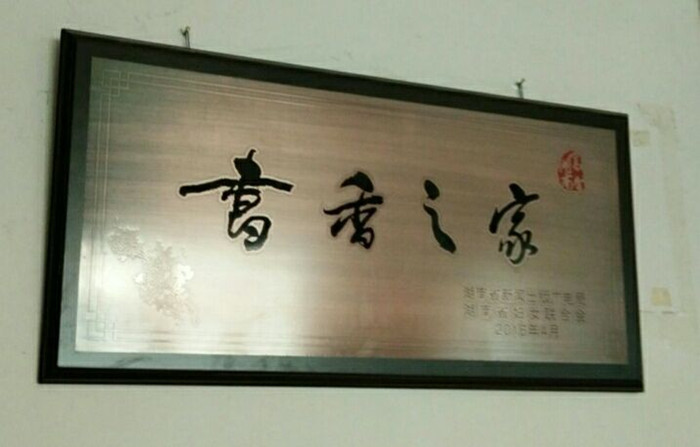 書香之家
湖南省新闻出版广电局
湖南省妇女联合会
2016年4月